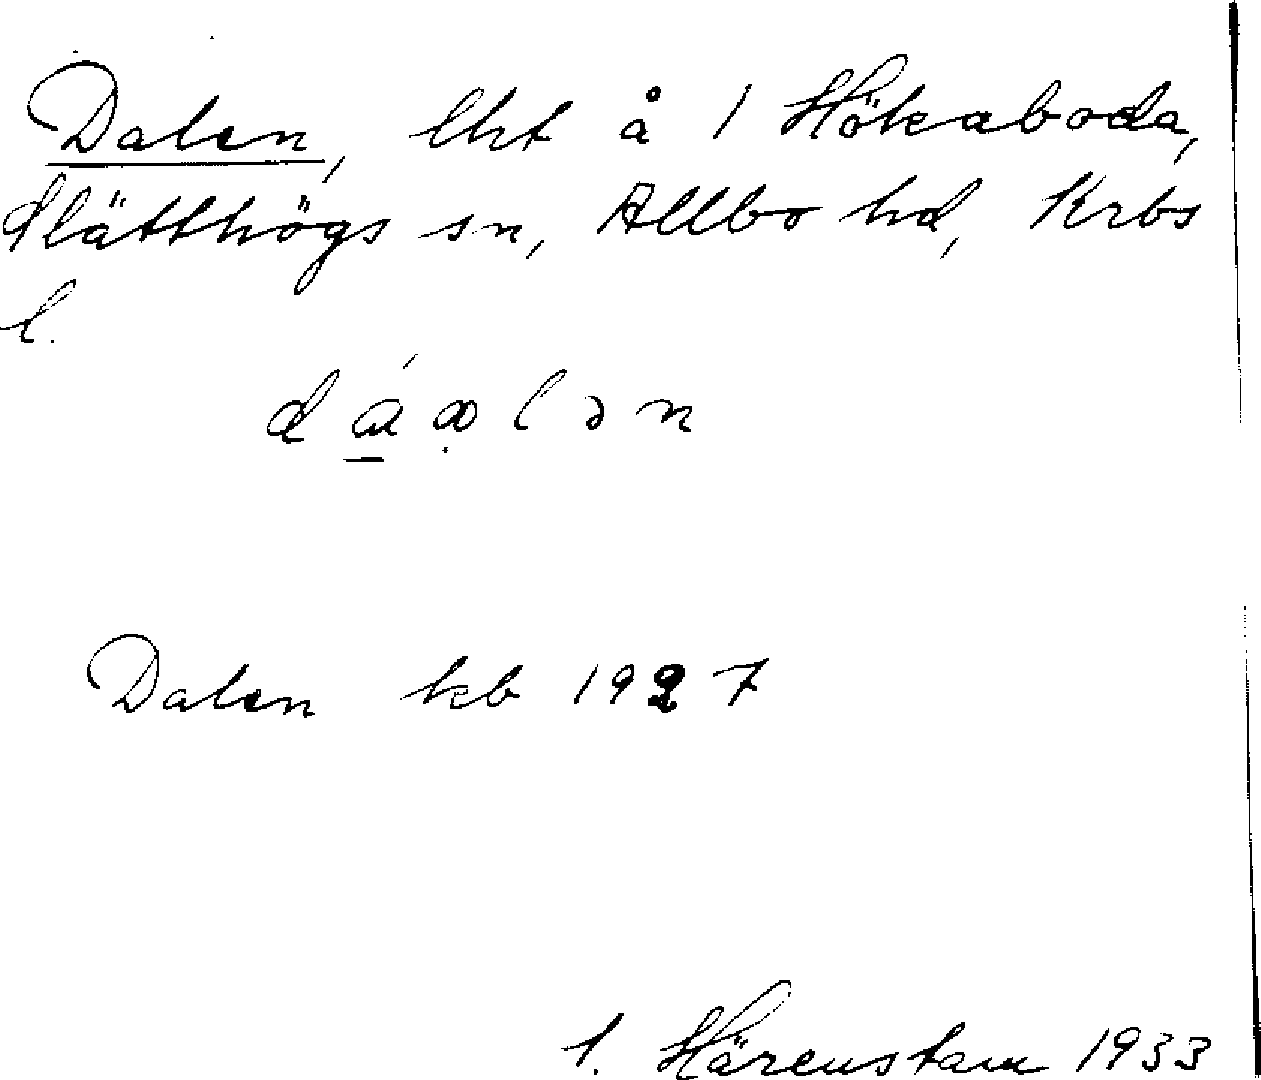 Dalen, lht å 1 Hökaboda,
Slätthögs sn, Allbo hd, Krbs
l.
dáꝏlən
Dalen kb 1927
1. Härenstam 1933